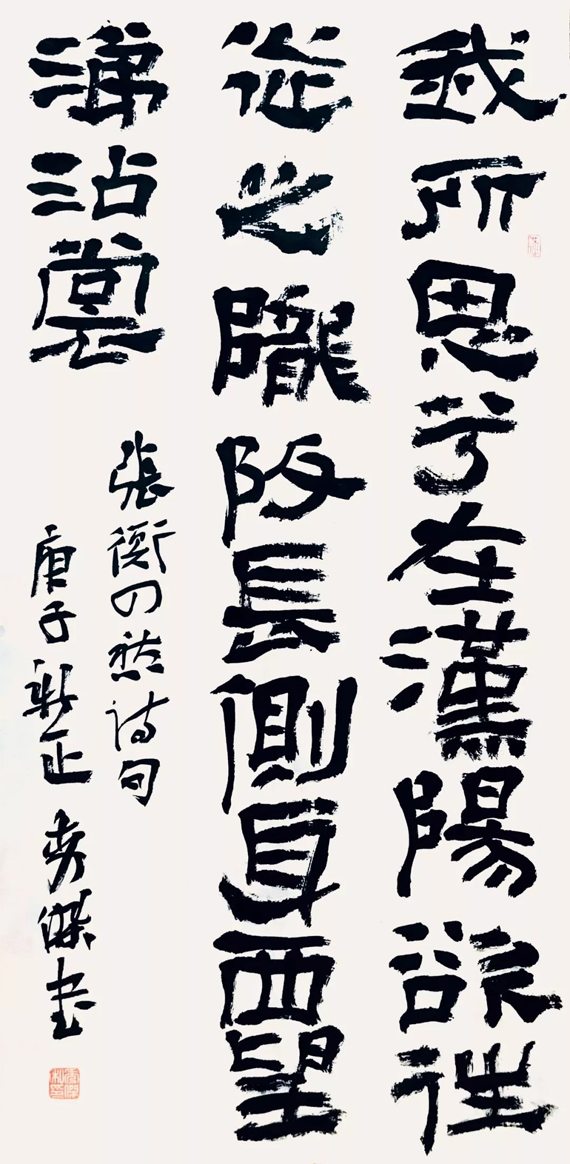 我所思兮在漢陽欲往
從之隴阪長側身西望
涕沾裳
張衡の愁诗句
庚子新正 秀傑书